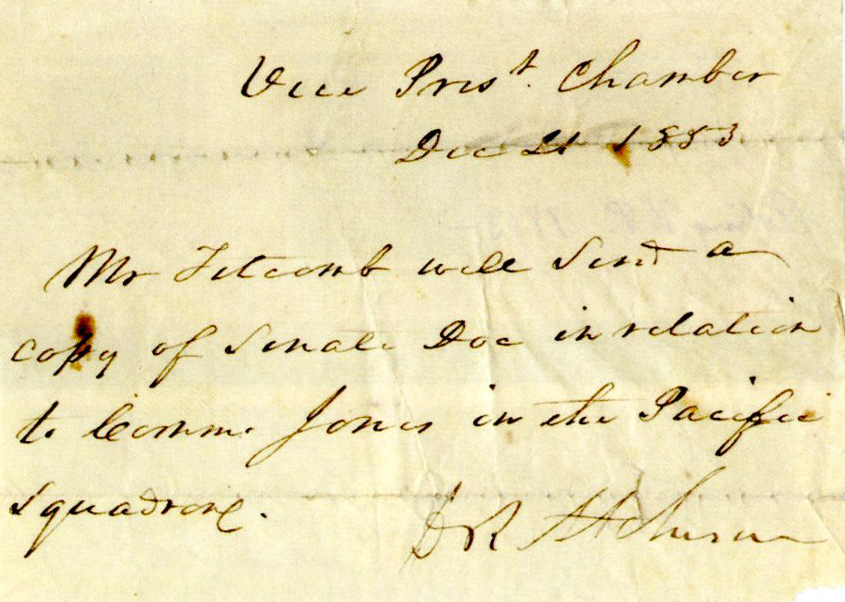 Vice Prest. Chamber
Dec 21 1853
Mr Titcomb will send a
copy of Senate Doc in relation
to Comm. Jones in the Pacific
Squadron.
D R Atchison